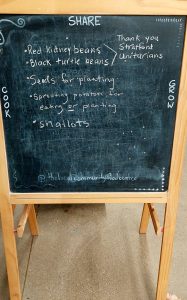 SHARE
• Red kidney beans
• Black turtle beans
Thank you
Stratford
Unitarians
• Seeds for planting
• Sprouting potatoes for
eating or planting
• shallots
COOK
GROW